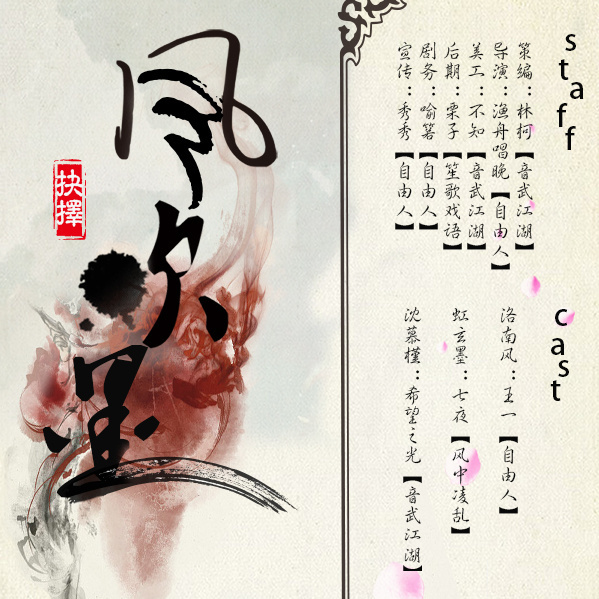 风吹墨
抉擇
staff
策编：林柯【音武江湖】
导演：渔舟唱晚【自由人】
美工：不知【音武江湖】
后期：栗子【笙歌戏语】
剧务：喻箬【自由人】
宣传：秀秀【自由人】
cast
洛南风：王一【自由人】
虹玄墨：七夜【风中凌乱】
沈慕槿：希望之光【音武江湖】